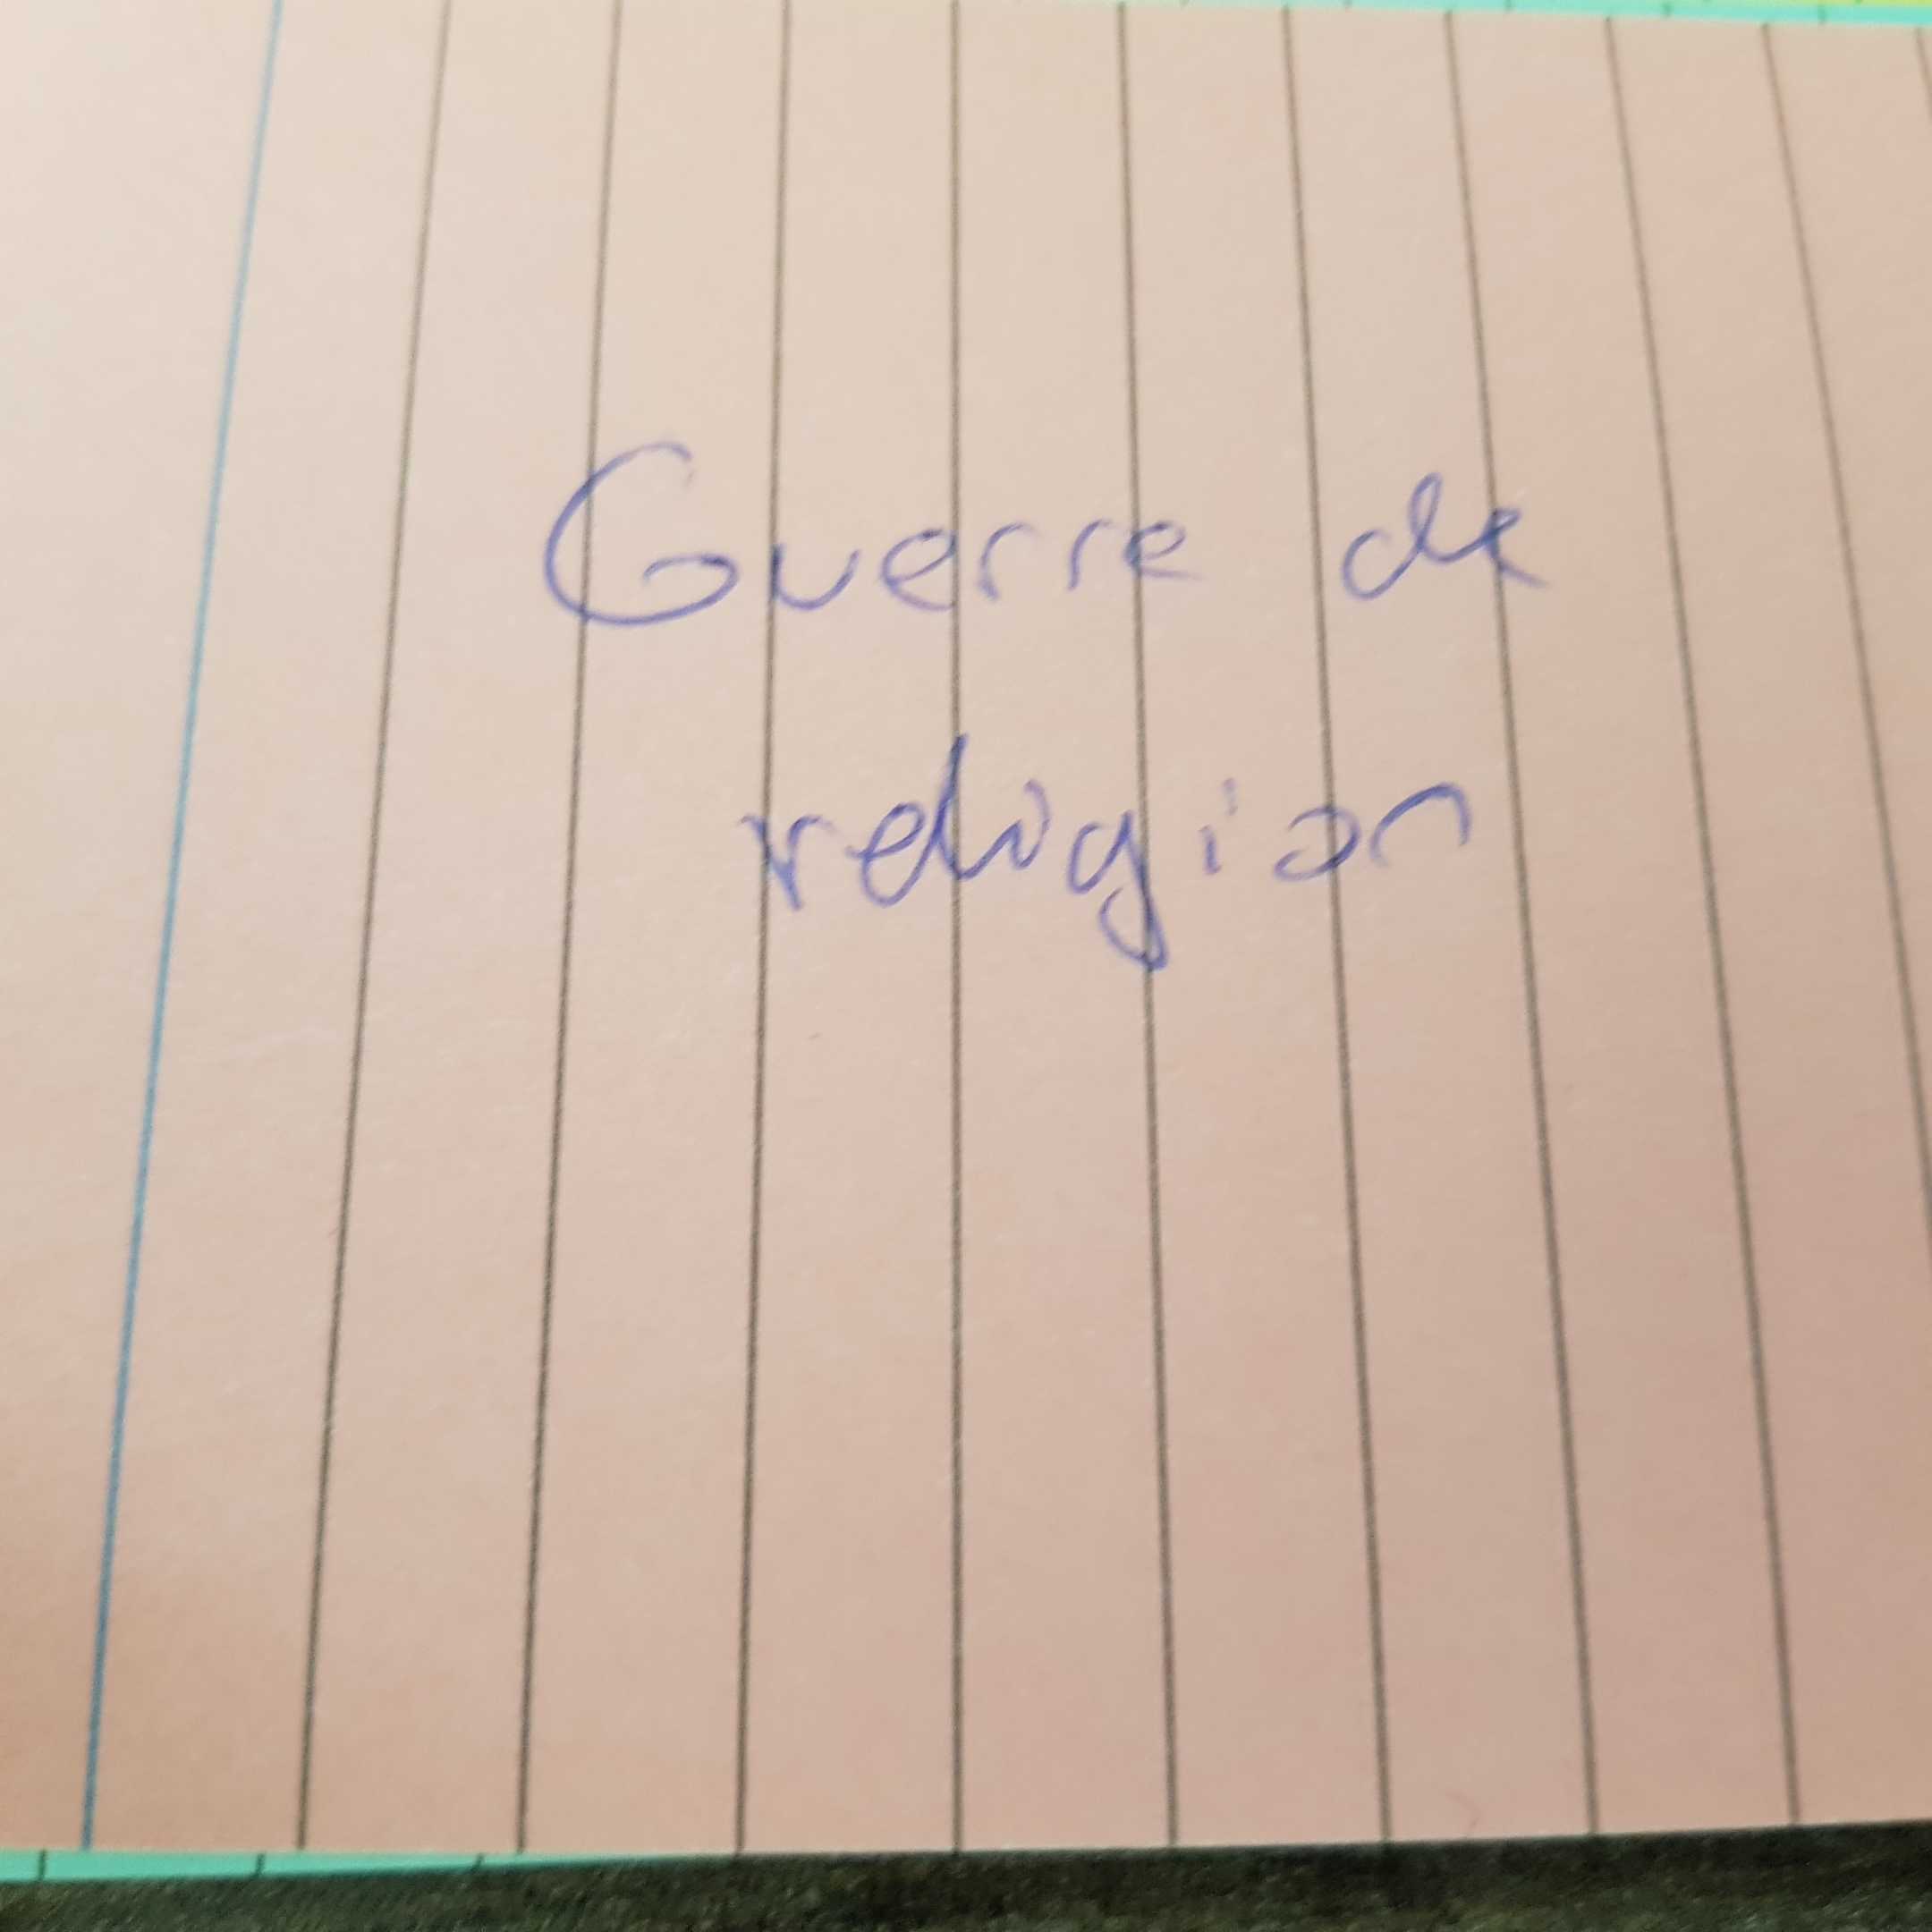 Guerre de
religion